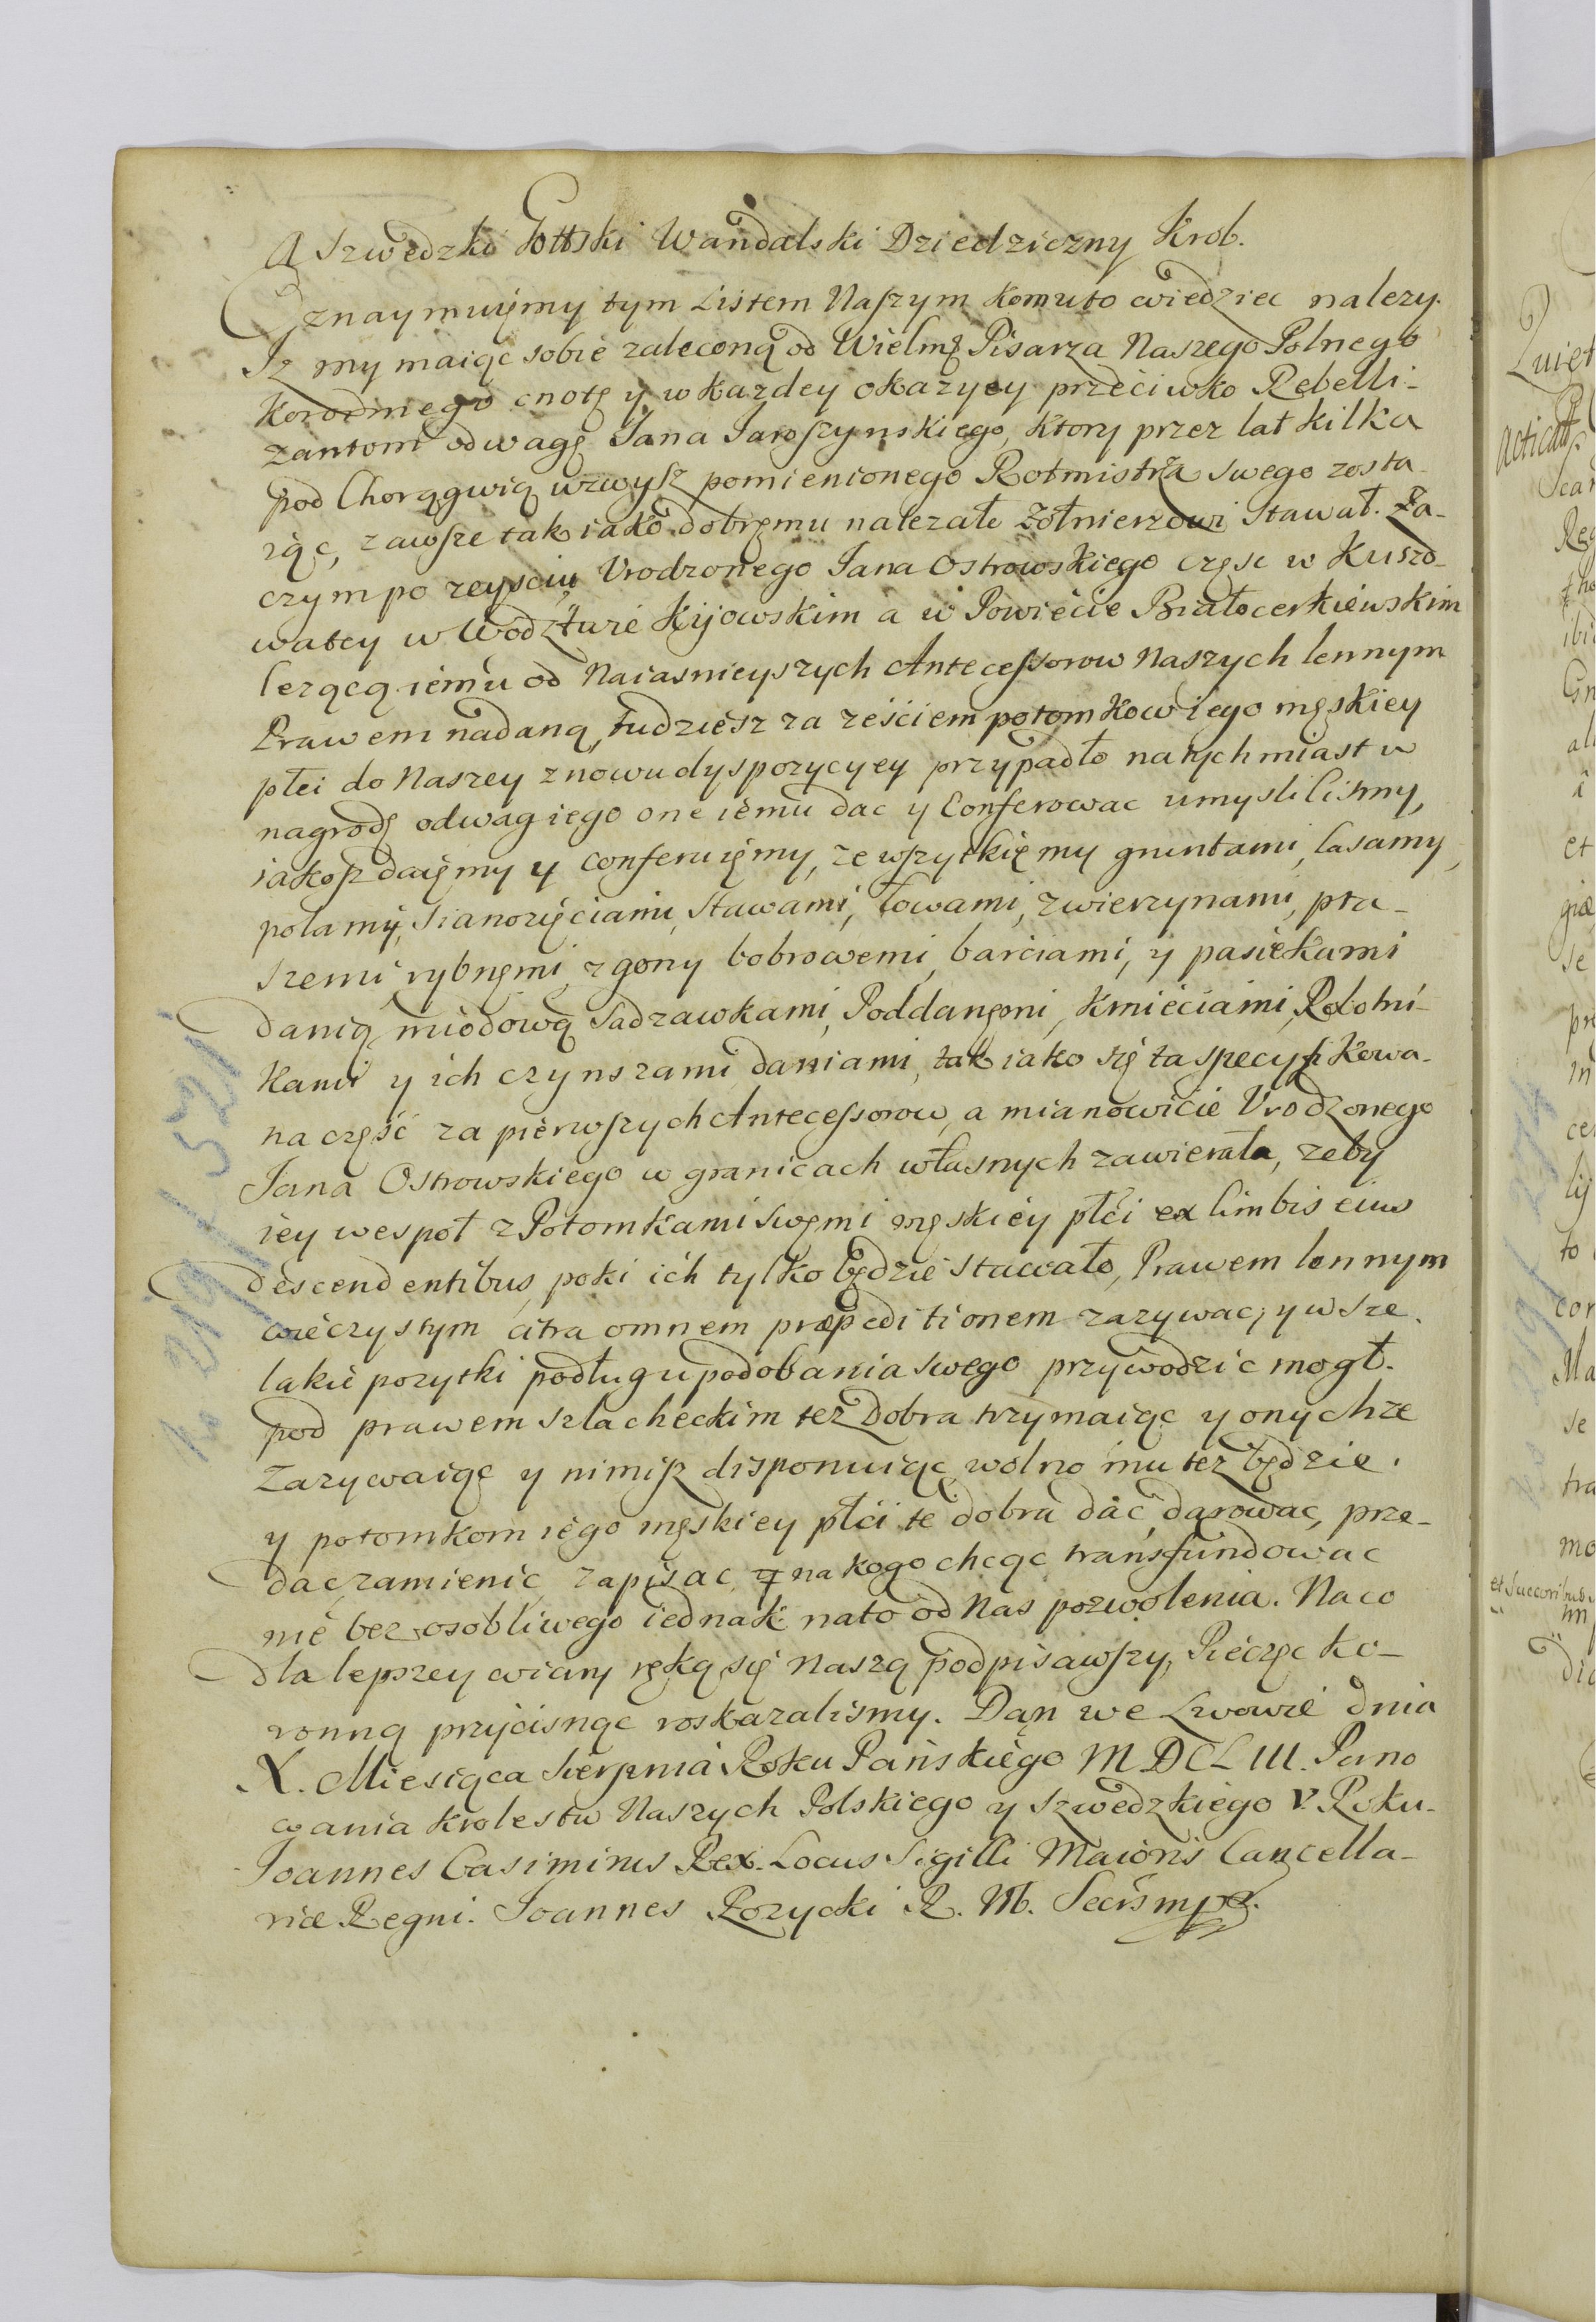 A Szwedzki Gottski Wandalski Dziedziczny Krol.
Oznaymuięmy tym Listem Naszym komuto wiedziec nalezy.
Iz my maiąc sobie zaleconą od Wielmę Pisarza Naszego Polnego
Koronnego cnotę y w kazdey okazyey przeciwko Rebelli-
zantom odwagę Jana Jaroszynskiego, ktory przez lat kilka
pod Chorągwią wzwysz pomienionego Rotmistrza swego zosta-
iąc, zawsze tak iako dobręmu nalezało Zołnierzowi stawał. Za-
czym po zeysciu Urodzonego Jana Ostrowskiego częsc w Kuszo-
watey w Wodztwie Kijowskim a w Powiecie Białocerkiewskim
lezącą iemu od Naiasnieyszych Antecessorow Naszych lennym
Prawem nadaną, tudziesz za ześciem potomkow iego męskiey
płci do Naszey znowu dyspozycyey przypadło natychmiast w
nagrodę odwag iego one iemu dac y Conferowac umyslilismy,
iakosz daięmy y conferuięmy, ze wszytkięmy gruntami, lasamy,
polamy, Sianozęciami, Stawami, łowami, zwierzynami, pta-
szemi rybnęmi, zgony bobrowemi, barciami, y pasiekami
danią miodową Sadzawkami, Poddanęmi, Kmieciami, Robotni-
kami y ich czynszami daniami, tak iako się ta specyfikowa-
na część za pierwszych Antecessorow, a mianowicie Urodzonego
Jana Ostrowskiego w granicach własnych zawierała, zeby
iey wespoł z Potomkami swęmi męskiey płci ex limbis eius
descendentibus, poki ich tylko będzie stawało, Prawem lennym
wieczystym citra omnem præpeditionem zazywac, y wsze-
lakie pozytki podług upodobania swego przywodzic mogł.
pod prawem szlacheckim tez Dobra trzymaiąc y onychze
Zazywaiąc y nimisz disponuiąc, wolno mu tez będzie.
y potomkom iego męskiey płci te dobra dać, darowac, prze-
dac, zamienic, zapisac, y na kogo chcąc transfundowac
nie bez osobliwego iednak nato od Nas pozwolenia. Na co
dla lepszey wiary ręką się Naszą podpisawszy, Pieczęc ko-
ronną przycisnąc roskazalismy. Dan we Lwowie dnia
X. Miesiąca Sierpnia Roku Pańskiego MDCLIII. Pano
wania krolestw Naszych Polskiego y Szwedzkiego V. Roku.
Joannes Casimirus Rex. Locus Sigilli Maioris Cancella-
riæ Regni. Joannes Rozycki R. M. Secris mpp.